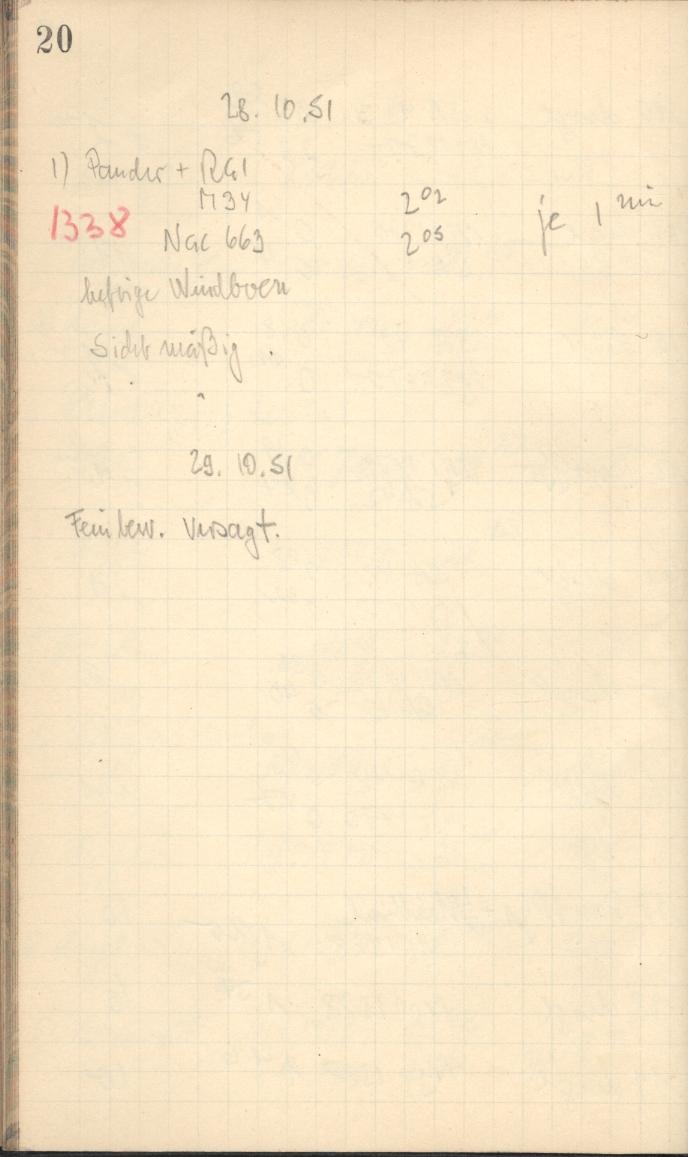 20
28. 10. 51
1) Pander + RG1
M34 2⁰² je 1 min
1338 NGC 663 2⁰⁵
heftige Windboen
Sicht mäßig.
29. 10. 51
Feinbew. versagt.